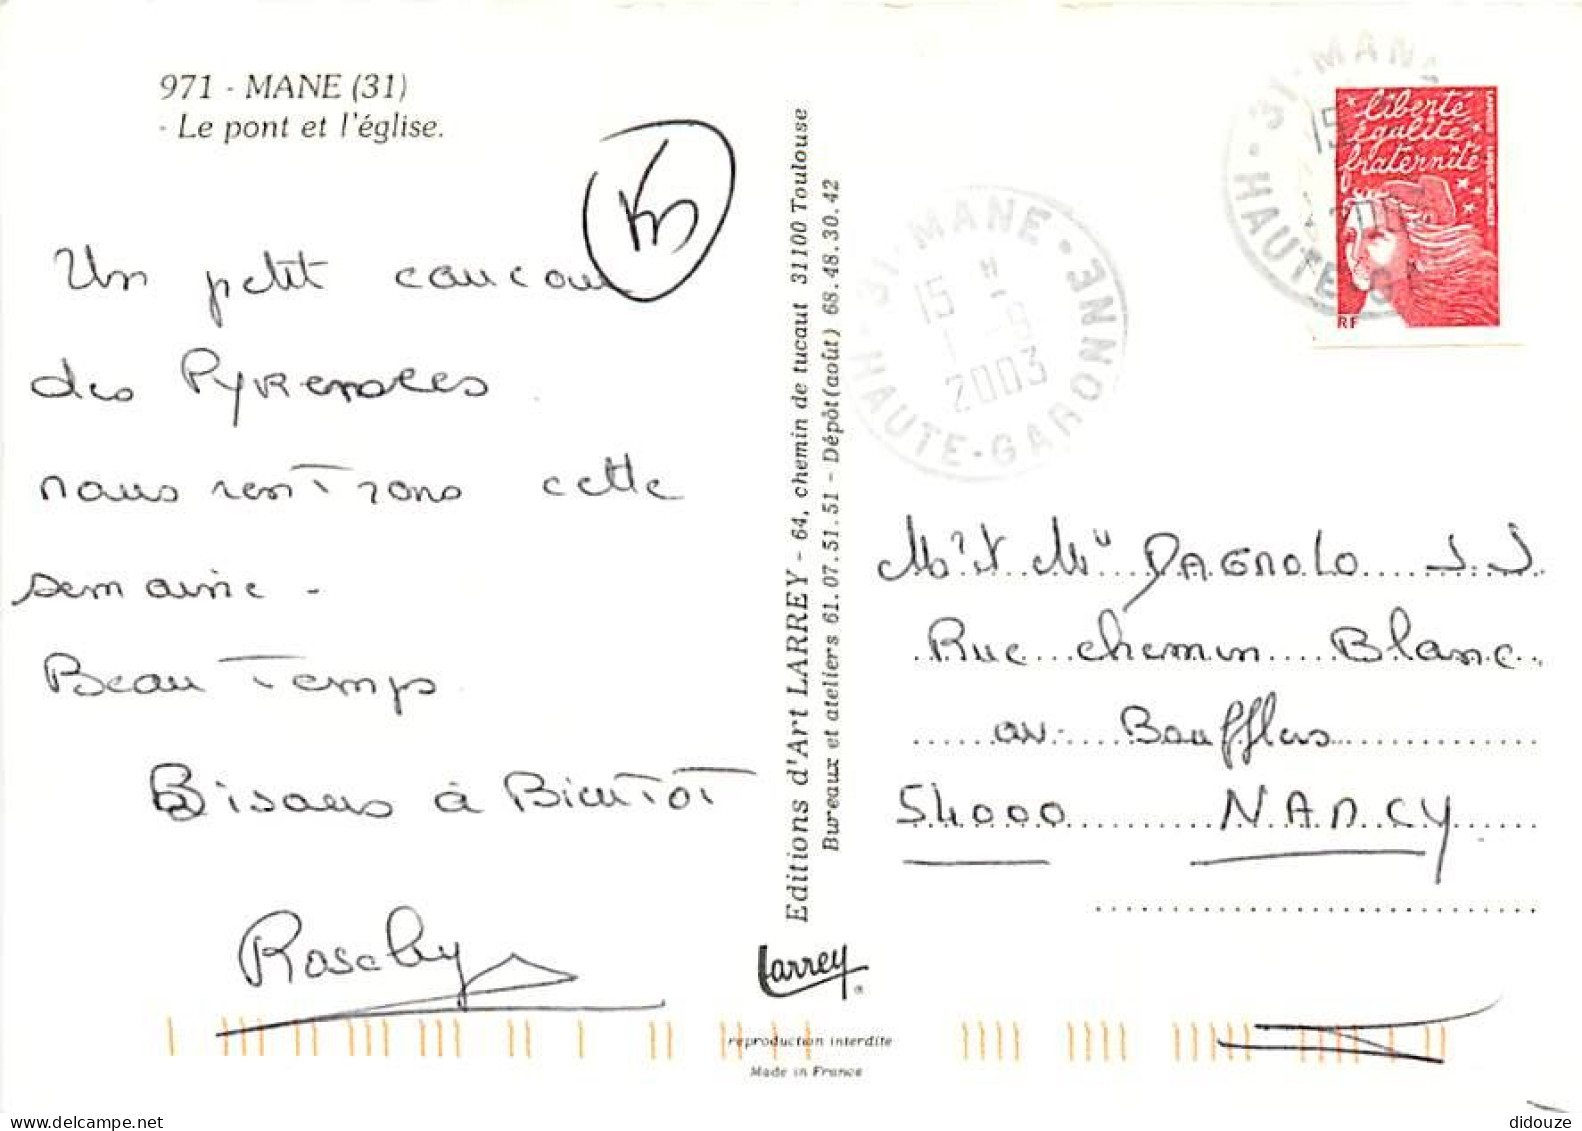 971 - MANE (31)
- Le pont et l'église.
Un petit coucou
des Pyrenees
nous rentrons cette
semaine -
Beau Temps
Bisous à BientôT
Editions d'Art LARREY - 64, chemin de tucaut 31100 Toulouse
Bureaux et ateliers 61.07.51.51 - Dépôt (août) 68.48.30.42
Larrey ®
reproduction interdite
Made in France
31 - MANE -
15 H
1 - 9
2003
HAUTE-GARONNE
31 - MANE
15
2003
HAUTE-GA
liberté
égalité
fraternité
RF
DAGNOLO J J
Rue chemin Blanc
av. Boufflers
54000 NANCY
didouze